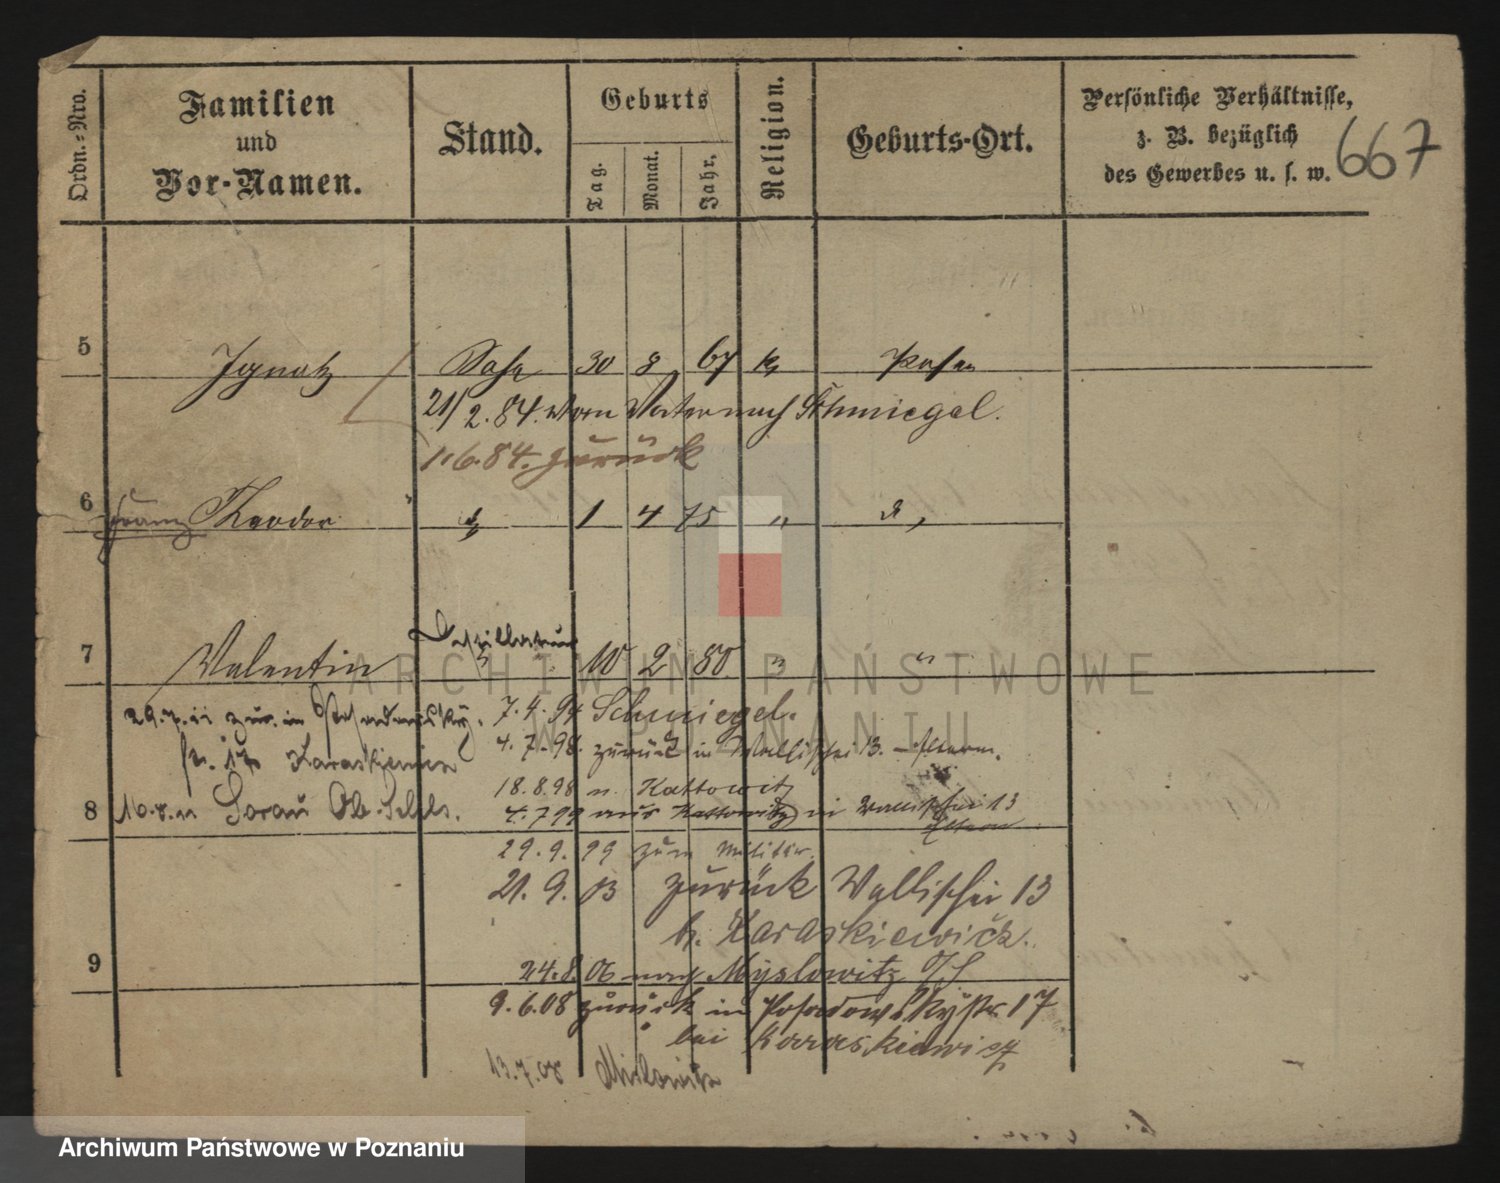 Ordn.-Nro.
Familien
und
Vor-Namen.
Stand.
Geburts
Tag.
Monat.
Jahr.
Religion.
Geburts-Ort.
Persönliche Verhältnisse,
z. B. bezüglich
des Gewerbes u. s. w.
667
5 Ignatz Sohn 30 8 67 k Posen
21/2.84. vom Vater nach Schmiegel.
1.6.84. zurück
6 Franz 1 4 75 " d,
7 Valentin 10 2 80 " "
29.7.11 zur. in
7.4.94 Schmiegel.
4.7.98. zurück in Wallischei 13. Eltern.
18.8.98 n. Kattowitz
8 Sorau Ob. Schles.
4.7.99 aus Kattowitz in Wallischei 13
Eltern
29.9.99 zum Militär.
21.9. zurück Wallischei 13
b. Karaskiewicz.
9
24.8.06 nach Myslowitz O/S
9.6.08 zurück in Posadowskystr 17
bei Karaskiewicz
13.7.08
ARCHIWUM PAŃSTWOWE
W POZNANIU
Archiwum Państwowe w Poznaniu